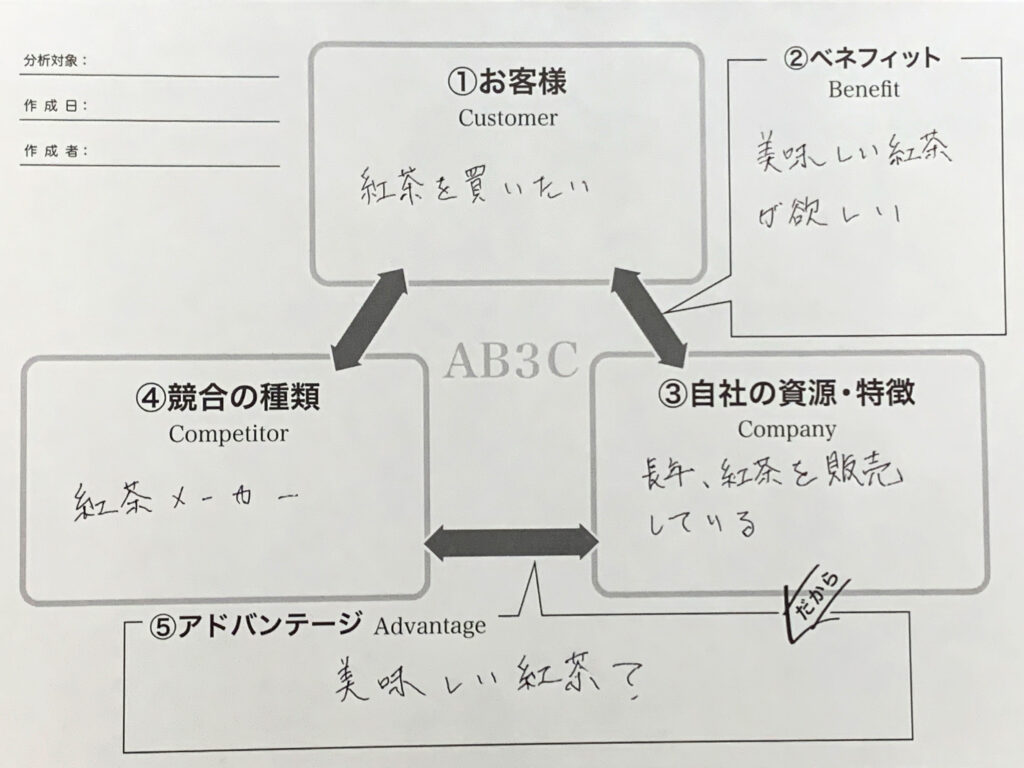 分析対象：
作成日：
作成者：
①お客様
Customer
紅茶を買いたい
②ベネフィット
Benefit
美味しい紅茶
が欲しい
AB3C
④競合の種類
Competitor
紅茶メーカー
③自社の資源・特徴
Company
長年、紅茶を販売
している
だから
⑤アドバンテージ Advantage
美味しい紅茶？